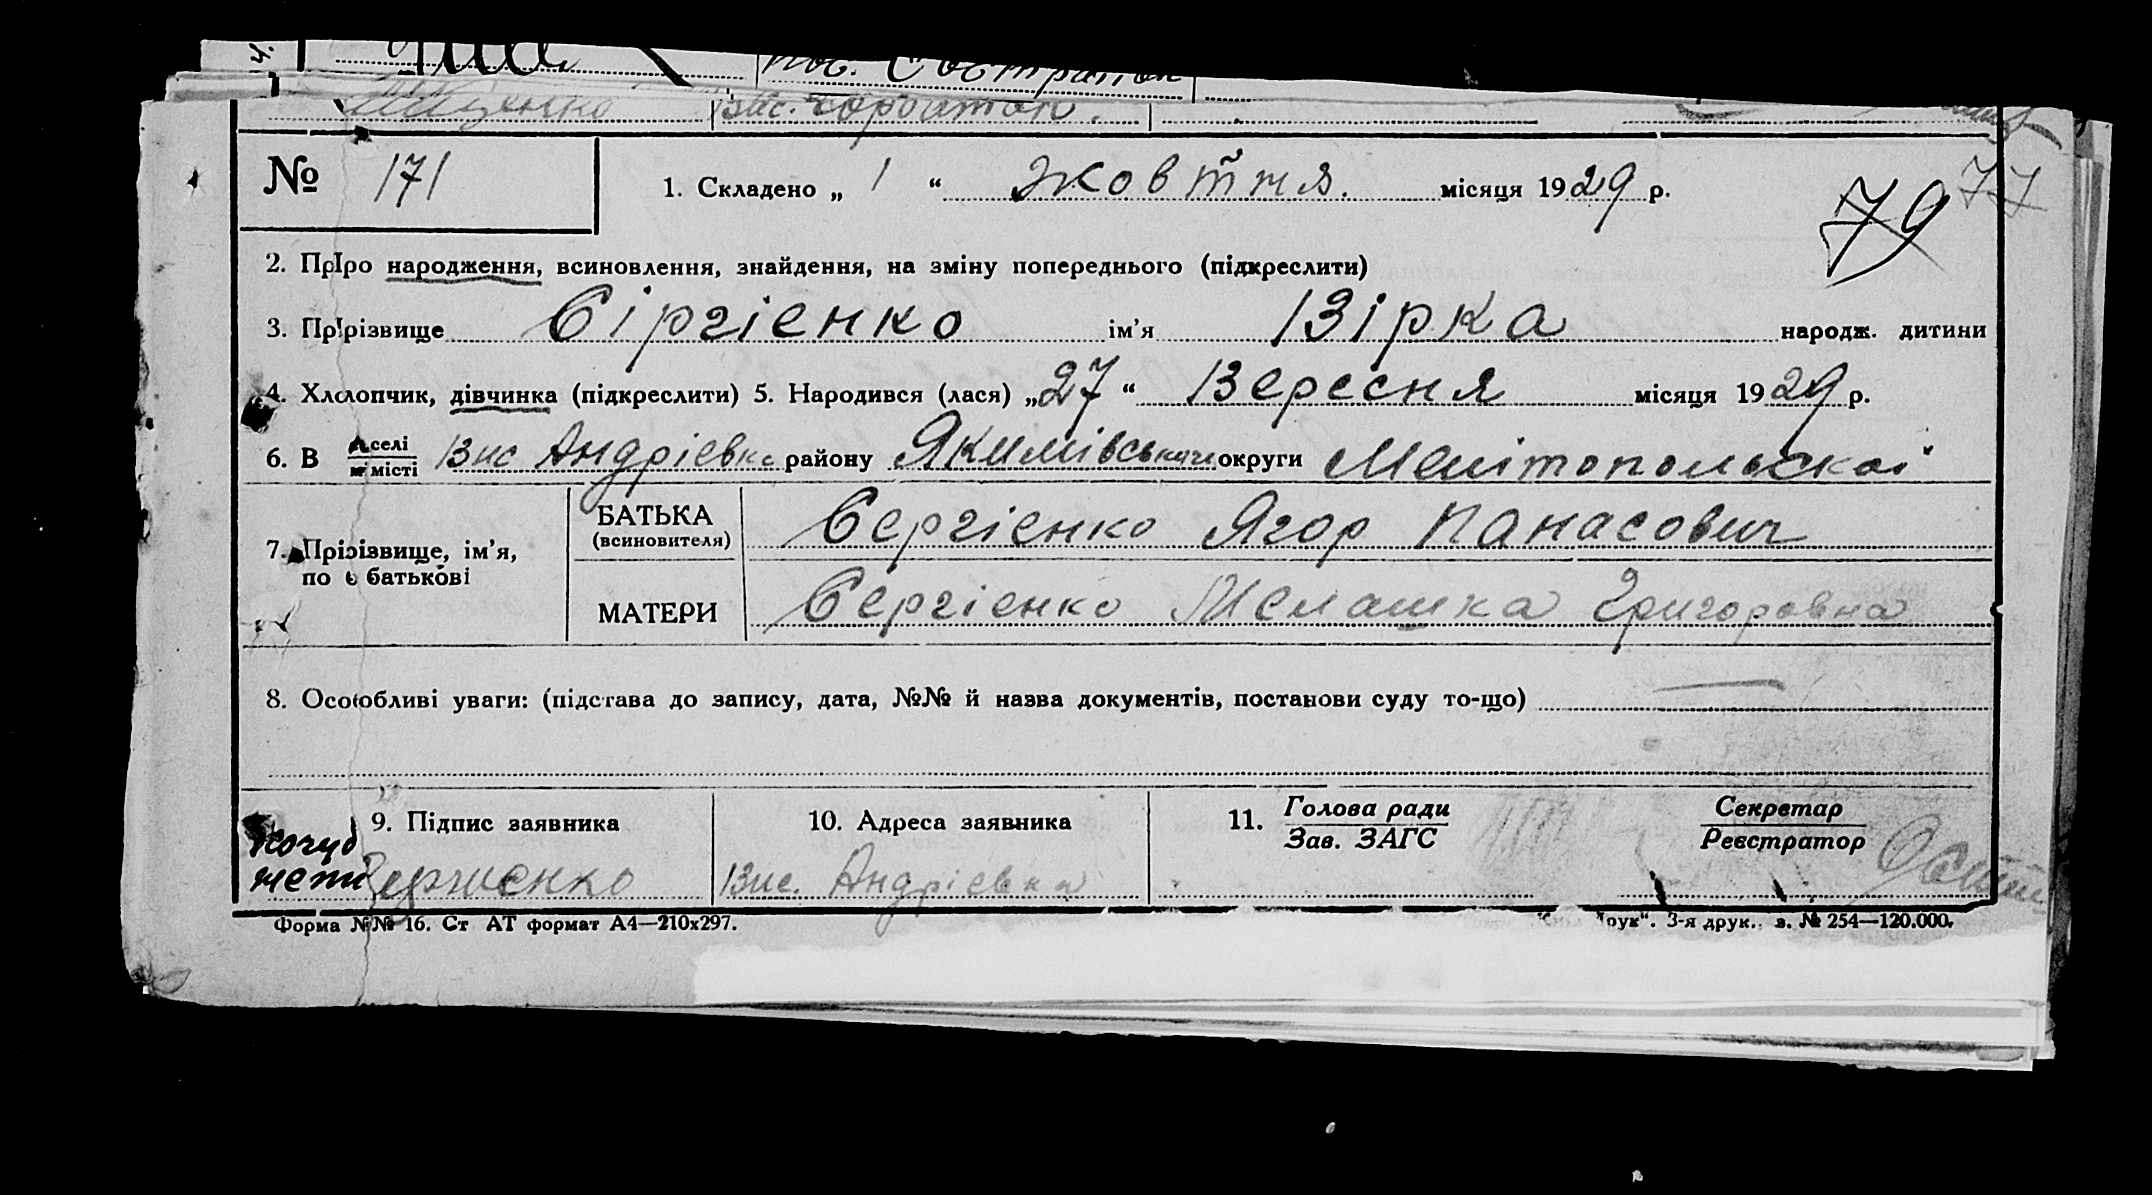 пос. Состропол
Міщенко вис. Горолтоп.
№ 171 1. Складено „ 1 “ Жовтня. місяця 1929 р. 79 77
2. Про народження, всиновлення, знайдення, на зміну попереднього (підкреслити)
3. Прізвище Сіргієнко ім’я Вірка народж. дитини
4. Хлопчик, дівчинка (підкреслити) 5. Народився (лася) „27“ Вересня місяця 1929 р.
6. В селі місті Вис Андрієвка району Якимівський округи Мелітопольскої
7. Прізвище, ім’я, по батькові
БАТЬКА (всиновителя) Сергієнко Ягор Панасович
МАТЕРИ Сергієнко Мелашка Григоровна
8. Особливі уваги: (підстава до запису, дата, №№ й назва документів, постанови суду то-що)
9. Підпис заявника 10. Адреса заявника 11. Голова ради Зав. ЗАГС Секретар Реєстратор
Вис. Андрієвка
Форма № 16. Ст АТ формат А4—210х297. Друк“. 3-я друк. з. № 254—120.000.